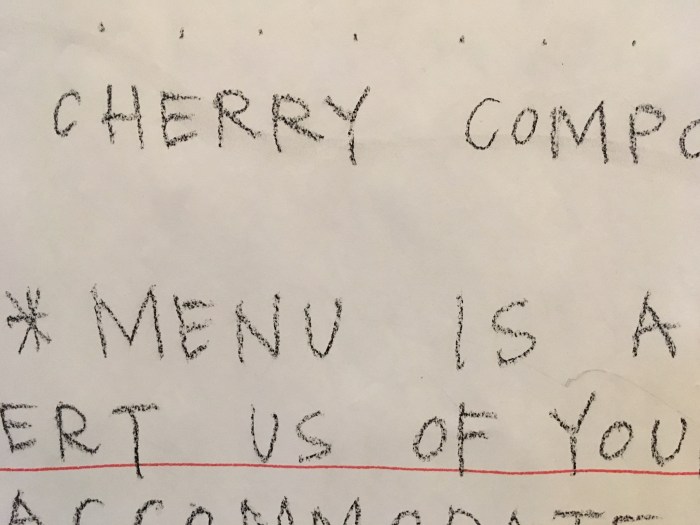 CHERRY COMPO
* MENU IS A
ERT US OF YOU
ACCOMMODATE